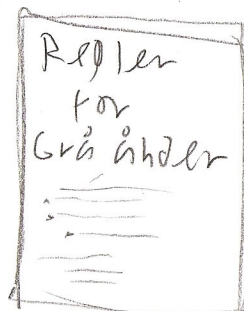 Regler
for
Grå ånder